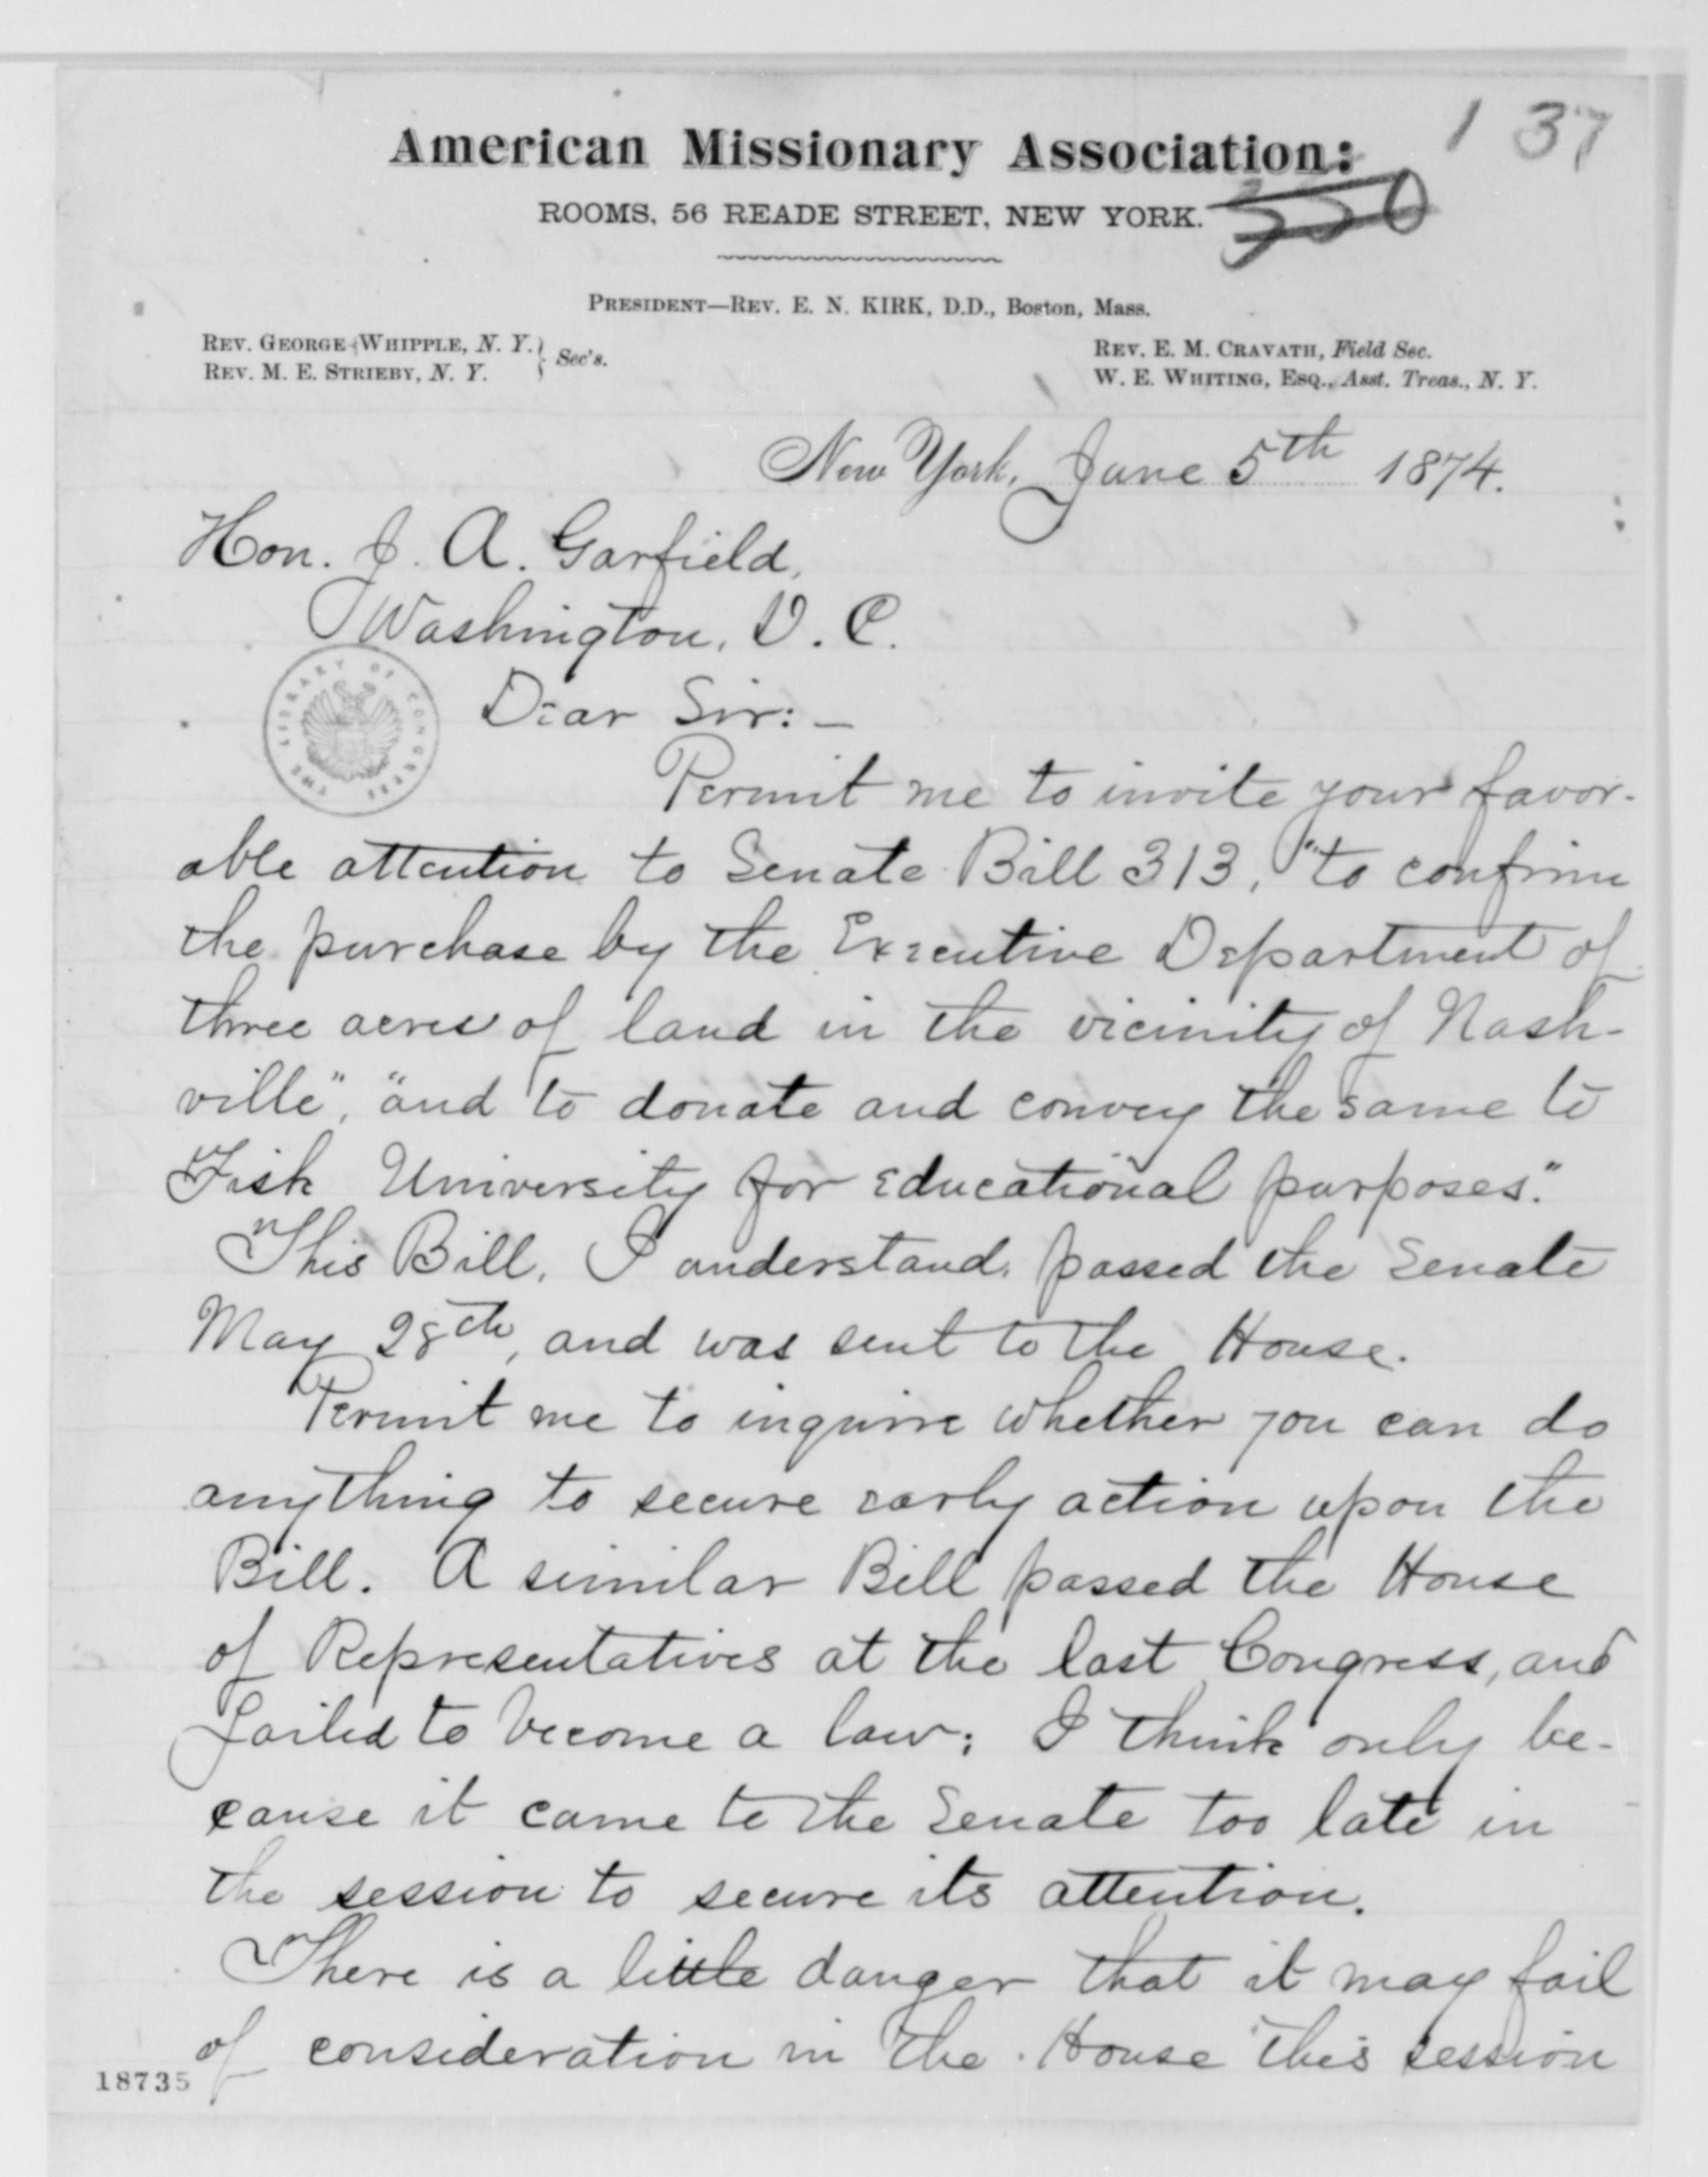 1 37
American Missionary Association:
ROOMS, 56 READE STREET, NEW YORK.
350
PRESIDENT—REV. E. N. KIRK, D.D., Boston, Mass.
REV. GEORGE WHIPPLE, N. Y. } Sec's.
REV. M. E. STRIEBY, N. Y.
REV. E. M. CRAVATH, Field Sec.
W. E. WHITING, ESQ., Asst. Treas., N. Y.
New York, June 5th 1874.
Hon. J. A. Garfield,
Washington, D. C.
THE LIBRARY OF CONGRESS
Dear Sir:—
Permit me to invite your favor-
able attention to Senate Bill 313, "to confirm
the purchase by the Executive Department of
three acres of land in the vicinity of Nash-
ville", "and to donate and convey the same to
Fisk University for educational purposes."
This Bill, I understand, passed the Senate
May 28th, and was sent to the House.
Permit me to inquire whether you can do
anything to secure early action upon the
Bill. A similar Bill passed the House
of Representatives at the last Congress, and
failed to become a law; I think only be-
cause it came to the Senate too late in
the session to secure its attention.
There is a little danger that it may fail
of consideration in the House this session
18735